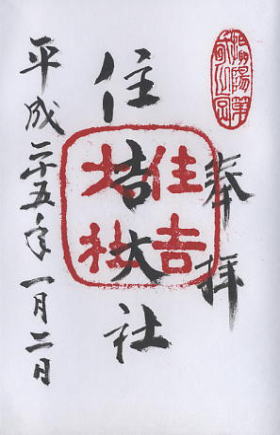 奉拝
住吉大社
平成二十五年一月二日
住吉
大社